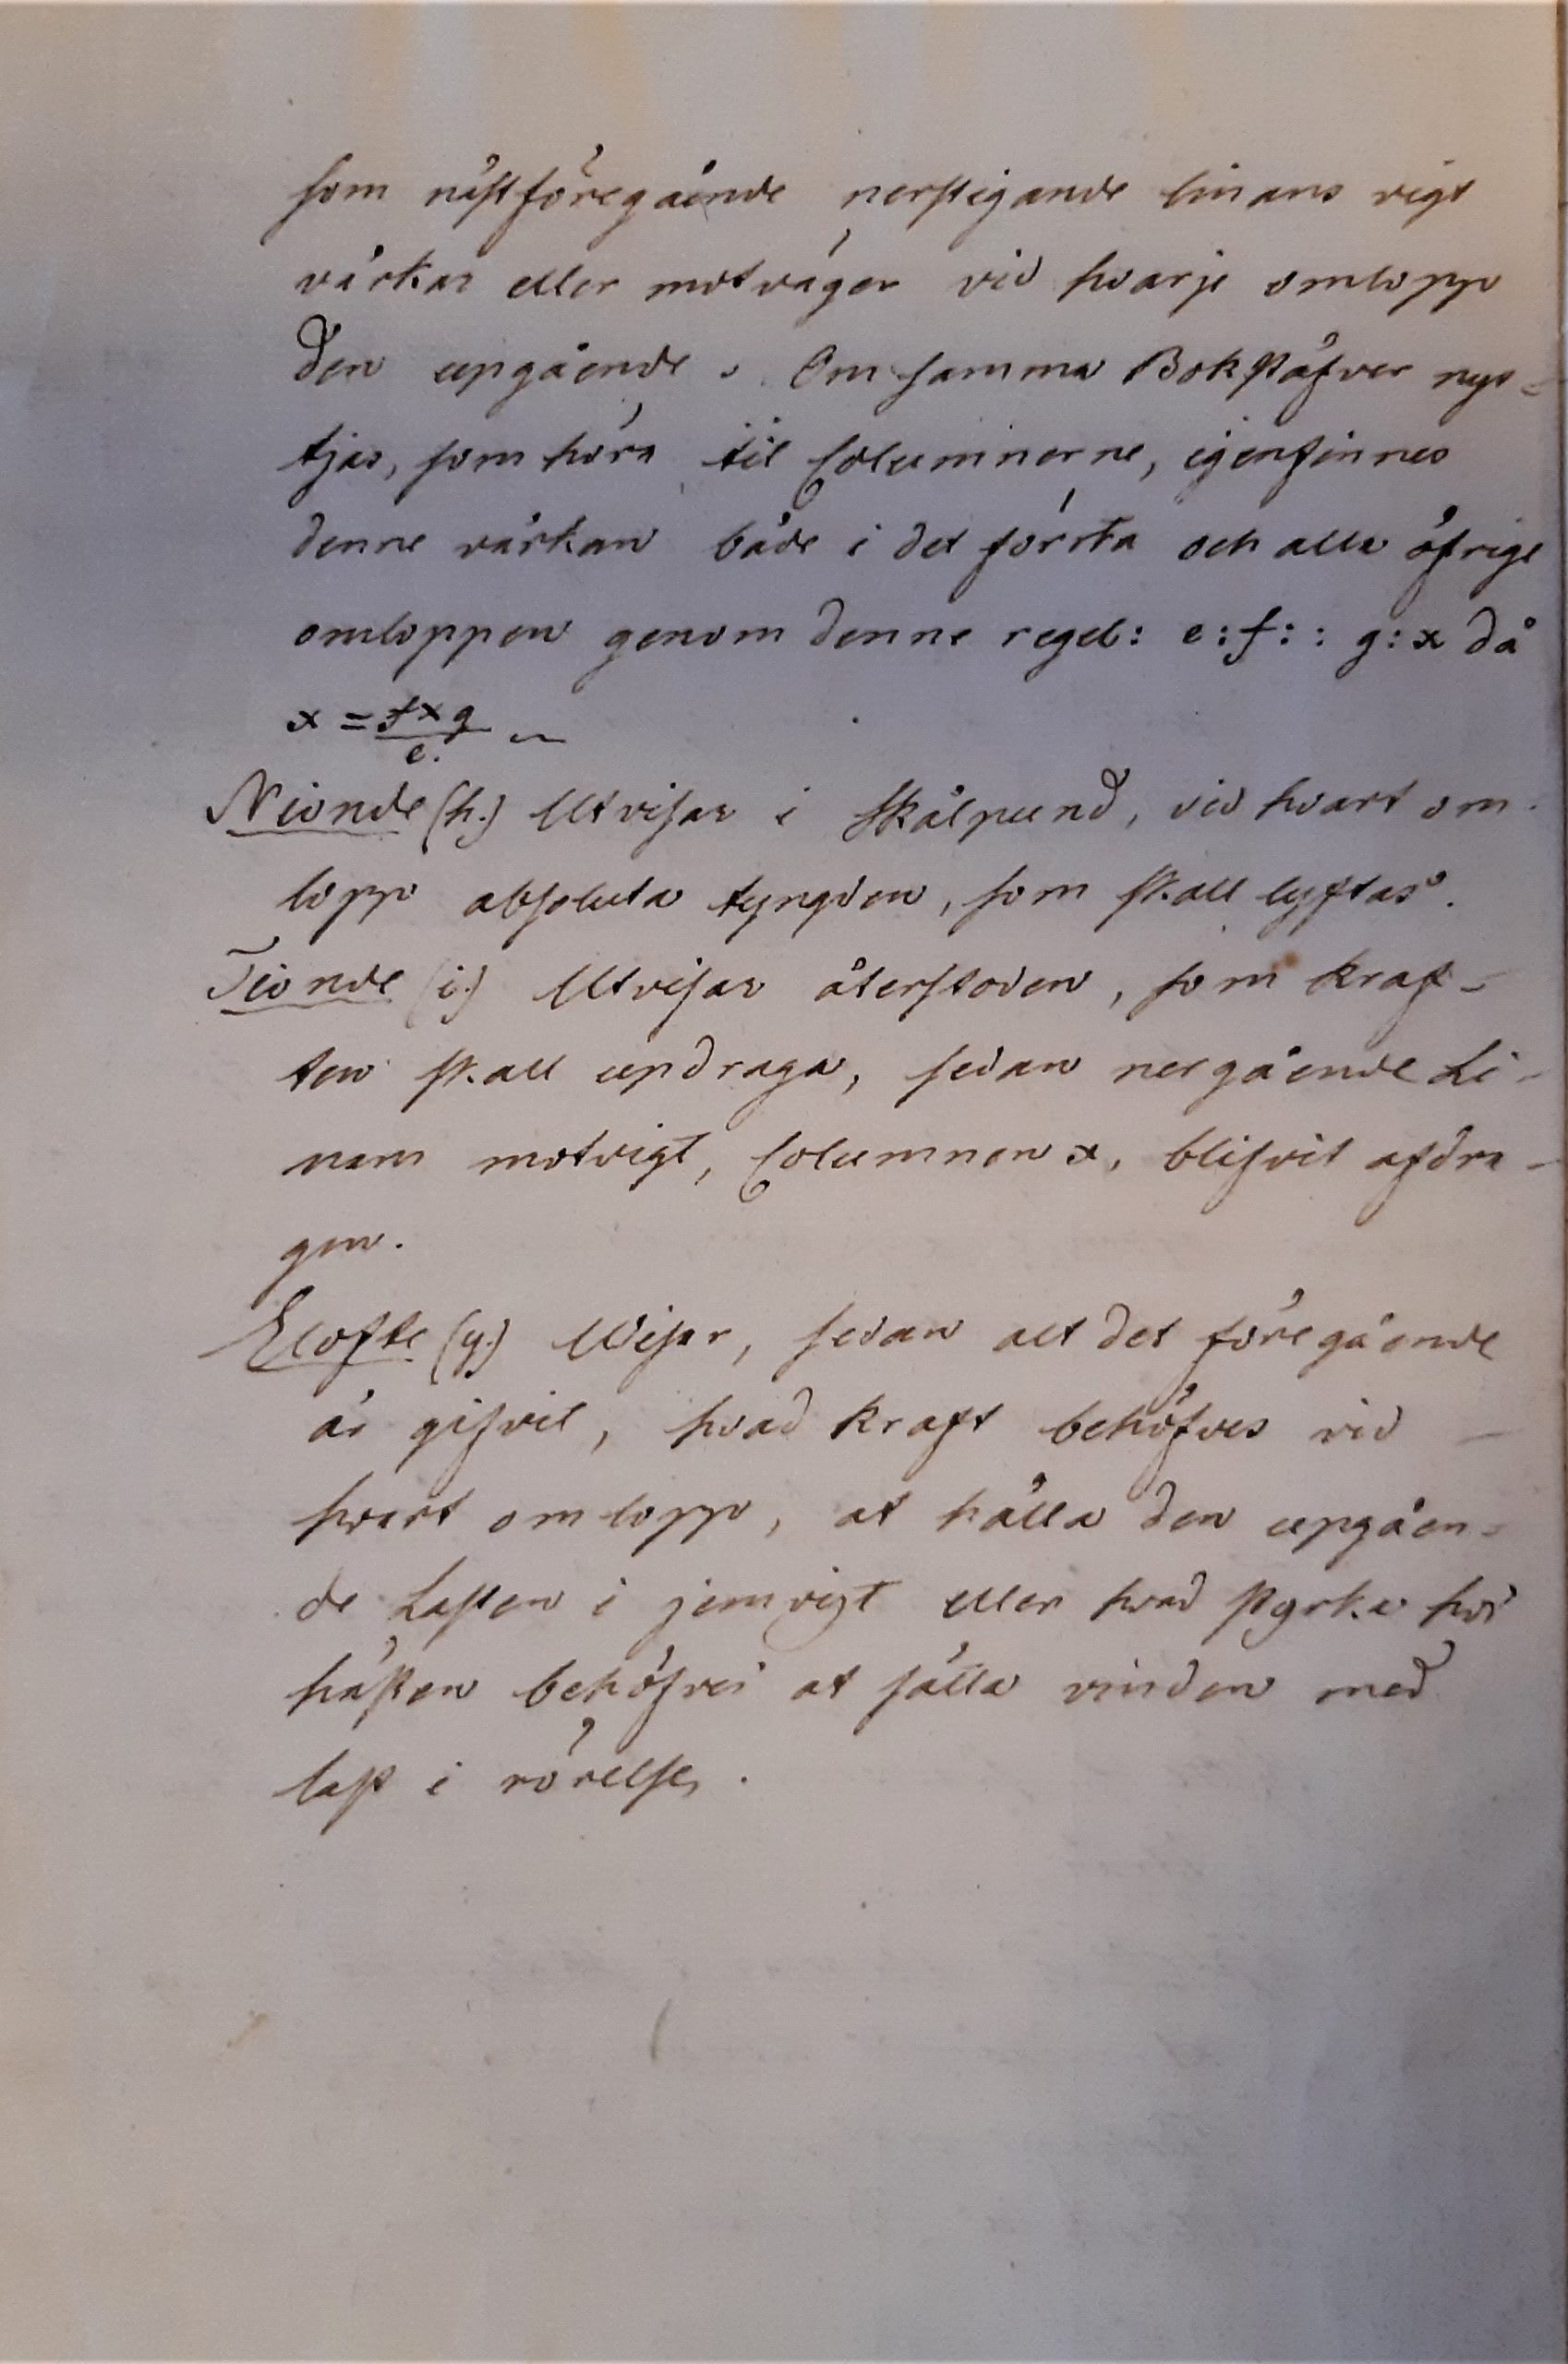 som nästföregående nerstigande linans vigt
värkar eller motväger vid hvarje omlopp
den upgående. Om samma Bokstäfver nyt-
tjas, som höra til Columnerne, igenfinnes
denne värkan både i det första och alla öfrige
omloppen genom denne regel: e:f:: g:x då
x = f×g/e. ~
Nionde (h.) Utvisar i Skålpund, vid hvart om-
lopp absoluta tyngden, som skall lyftas.
Tionde (i.) Utvisar återstoden, som kraf-
ten skall updraga, sedan nergående Li-
nans motvigt, Columnen x, blifvit afdra-
gen.
Elofte (y.) Wisar, sedan alt det föregående
är gifvit, hvad kraft behöfves vid -
hvart omlopp, at hålla den upgåen-
de Lasten i jemvigt eller hvad styrka
hästen behöfver at sätta vinden med
last i rörelse.